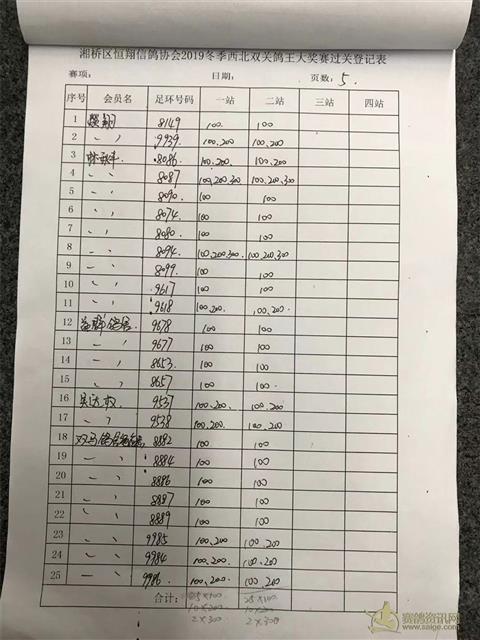 湘桥区恒翔信鸽协会2019冬季西北双关鸽王大奖赛过关登记表
赛项: 日期: 页数: 5.
序号 会员名 足环号码 一站 二站 三站 四站
1 8149 100. 100.
2 〃 9939 100.200 100.200
3 8086 100.200. 100.200
4 〃 8087 100.200.300 100.200.300
5 〃 8090 100 100
6 〃 8074 100 100
7 〃 8080 100 100
8 〃 8094 100.200.300. 100.200.300
9 〃 8099 100 100
10 〃 9617 100 100
11 〃 9618 100.200. 100.200.
12 9678 100 100
13 〃 9677 100 100
14 〃 8653 100 100
15 〃 8657 100 100
16 吴达权 9537 100.200. 100.200.
17 〃 9538 100.200. 100.200
18 8882 100 100
19 〃 8884 100 100
20 〃 8886 100 100
21 〃 8887 100 100
22 〃 8889 100 100
23 〃 9985 100.200 100.200
24 〃 9984 100.200 100.200
25 〃 9986. 100.200. 100.200
合计: 25×100 25×100
10×200 10×200
2×300 2×300
赛鸽资讯网
www.saige.com